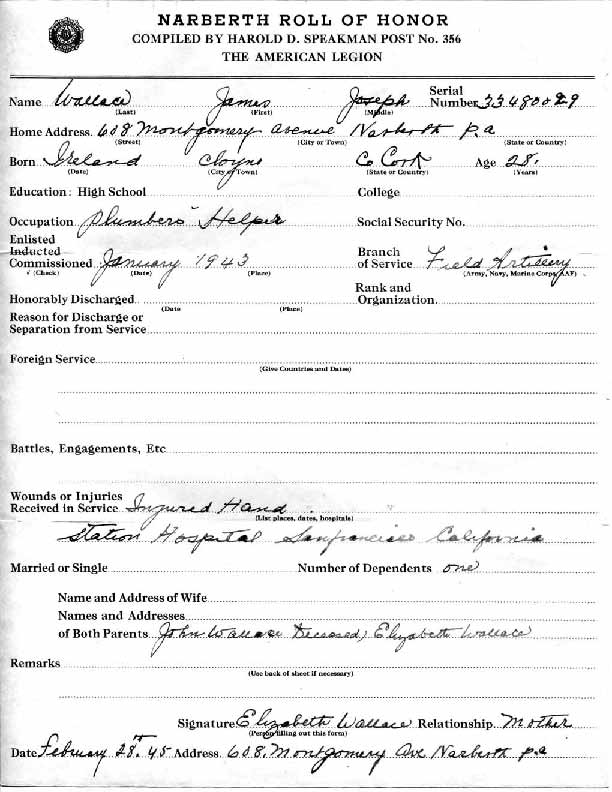 NARBERTH ROLL OF HONOR
COMPILED BY HAROLD D. SPEAKMAN POST No. 356
THE AMERICAN LEGION
Name Wallace James Joseph Serial Number 33480029
(Last) (First) (Middle)
Home Address 608 Montgomery avenue Narberth Pa
(Street) (City or Town) (State or Country)
Born Ireland Cloyne Co Cork Age 28.
(Date) (City or Town) (State or Country) (Years)
Education: High School College
Occupation Plumbers Helper Social Security No.
Enlisted
Inducted
Commissioned January 1943 Branch of Service Field Artillery
√ (Check) (Date) (Place) (Army, Navy, Marine Corps, AAF)
Honorably Discharged Rank and Organization
(Date (Place)
Reason for Discharge or
Separation from Service
Foreign Service
(Give Countries and Dates)
Battles, Engagements, Etc
Wounds or Injuries
Received in Service Injured Hand
(List places, dates, hospitals)
Station Hospital Sanfrancisco California
Married or Single Number of Dependents one
Name and Address of Wife
Names and Addresses
of Both Parents John Wallace Deceased, Elizabeth Wallace
Remarks
(Use back of sheet if necessary)
Signature Elizabeth Wallace Relationship Mother
(Person filling out this form)
Date February 28th. 45 Address 608. Montgomery Ave Narberth pa